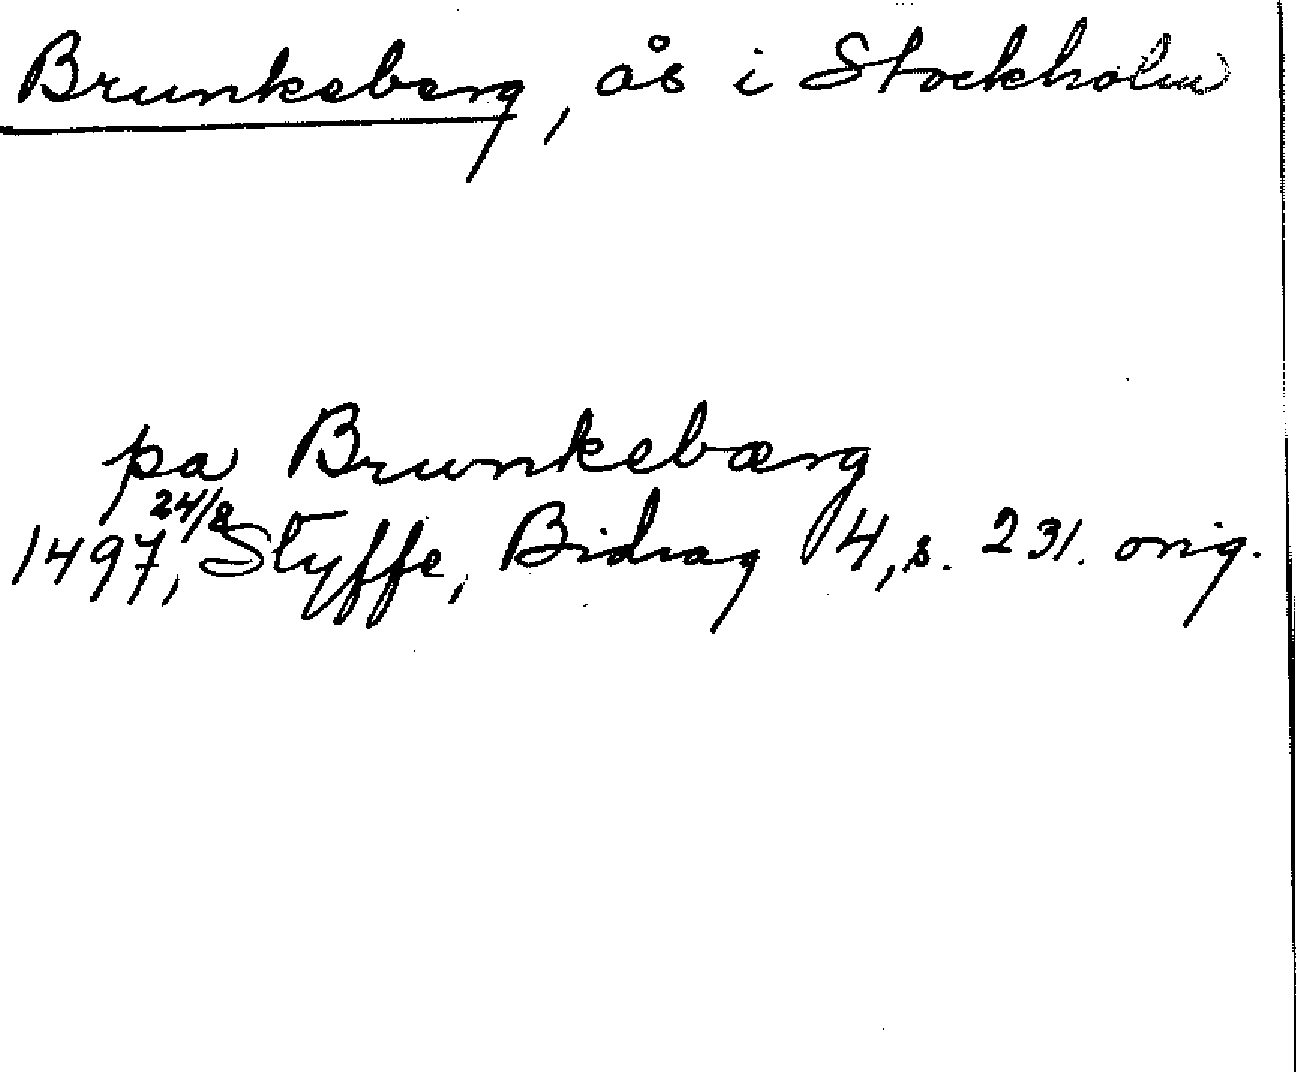 Brunkeberg, ås i Stockholm
pa Brunkebærg
1497 24/8, Styffe, Bidrag 4, s. 231. orig.